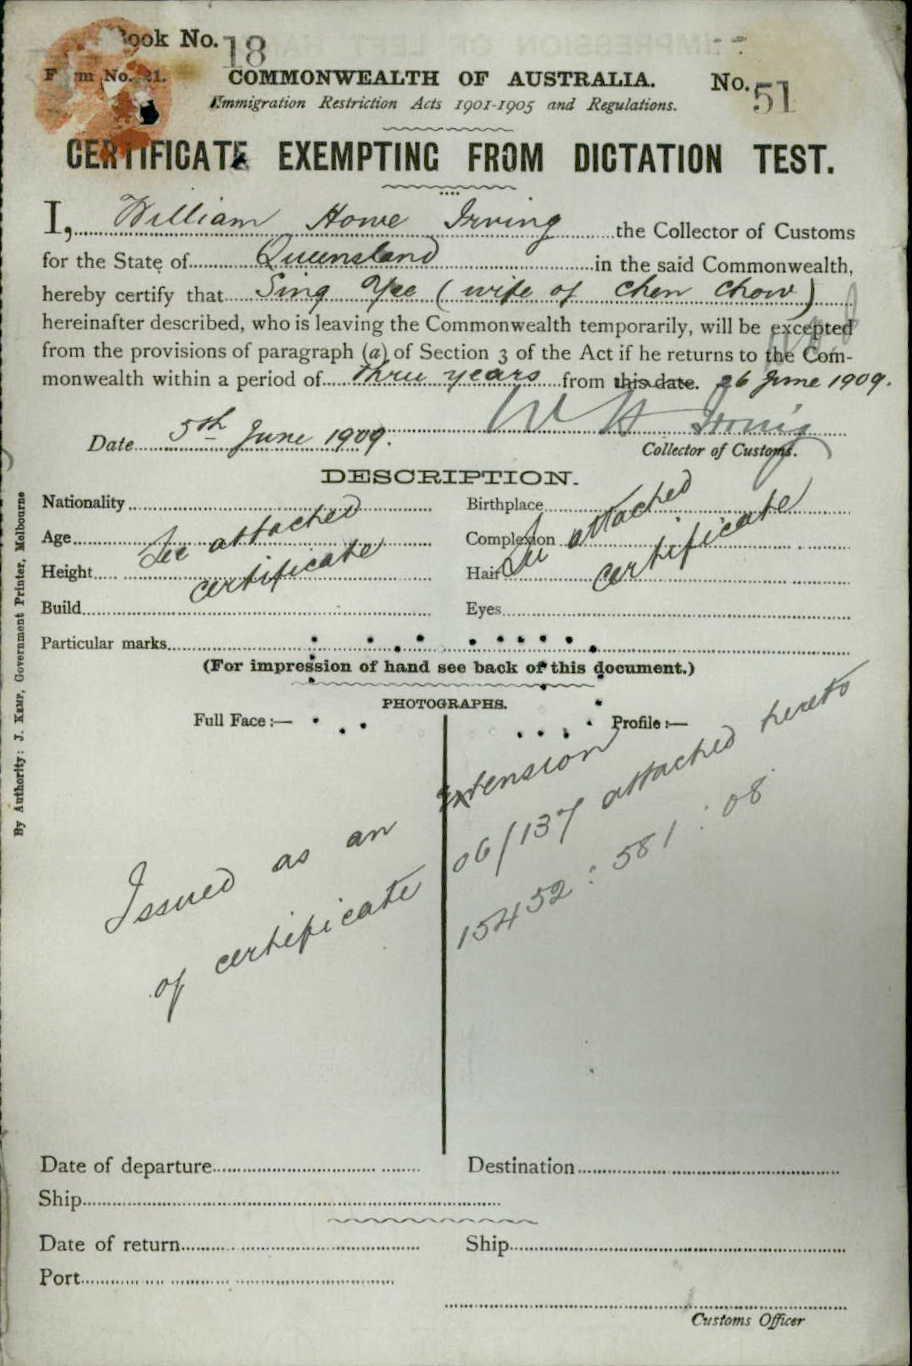 Book No. 18
Form No. 21.
COMMONWEALTH OF AUSTRALIA.
No. 51
Immigration Restriction Acts 1901-1905 and Regulations.
CERTIFICATE EXEMPTING FROM DICTATION TEST.
I, William Howe Irving the Collector of Customs
for the State of Queensland in the said Commonwealth,
hereby certify that Sing Yee (wife of Chen Chow)
hereinafter described, who is leaving the Commonwealth temporarily, will be excepted
from the provisions of paragraph (a) of Section 3 of the Act if he returns to the Com-
monwealth within a period of three years from this date. 26 June 1909.
W H Irving
Date 5th June 1909.
Collector of Customs.
DESCRIPTION.
Nationality
Birthplace
Age
Complexion
Height
Hair
See attached certificate
See attached certificate
Build
Eyes
Particular marks
(For impression of hand see back of this document.)
PHOTOGRAPHS.
Full Face :—
Profile :—
Issued as an extension
of certificate 06/137 attached hereto
15452 : 581 : 08
Date of departure
Destination
Ship
Date of return
Ship
Port
Customs Officer
By Authority: J. Kemp, Government Printer, Melbourne